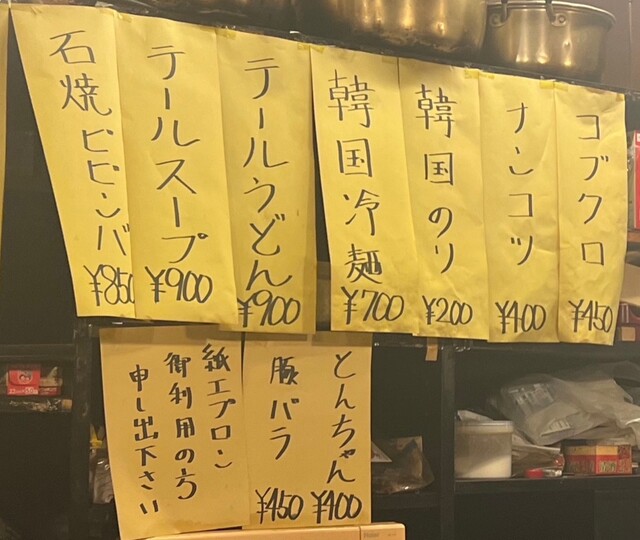 コブクロ
¥450
ナンコツ
¥400
韓国のり
¥200
韓国冷麺
¥700
テールうどん
¥900
テールスープ
¥900
石焼ビビンバ
¥850
とんちゃん
¥400
豚バラ
¥450
紙エプロン
御利用の方
申し出下さい